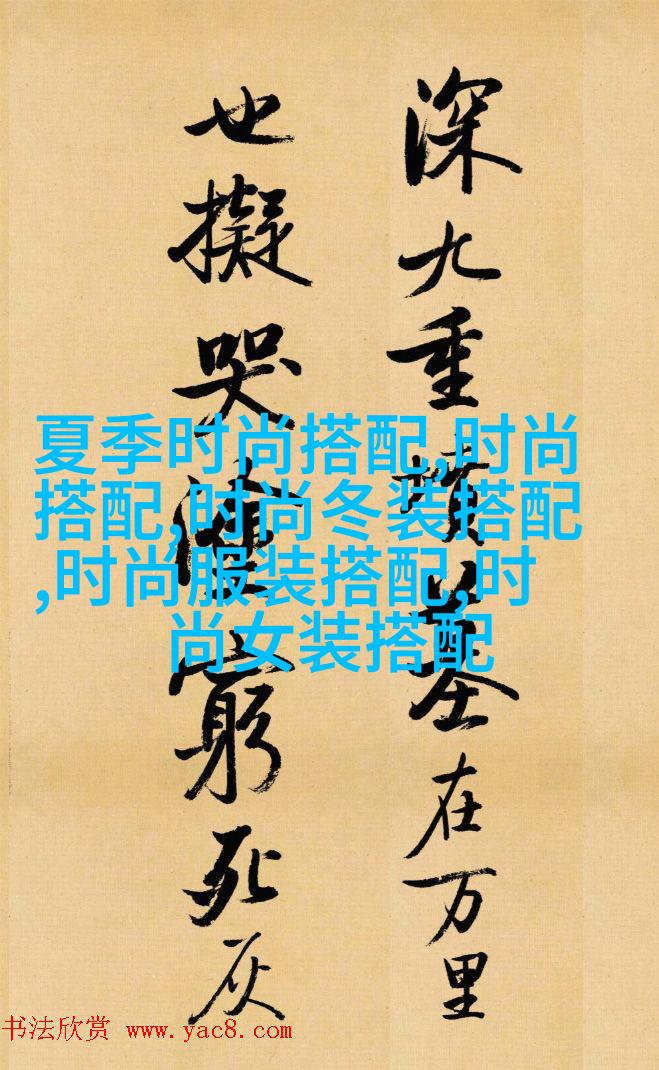 深九重墳墓在万里
也擬哭塗窮死灰
夏季时尚搭配,时尚
搭配,时尚冬装搭配
,时尚服装搭配,时
尚女装搭配
书法欣赏 www.yac8.com